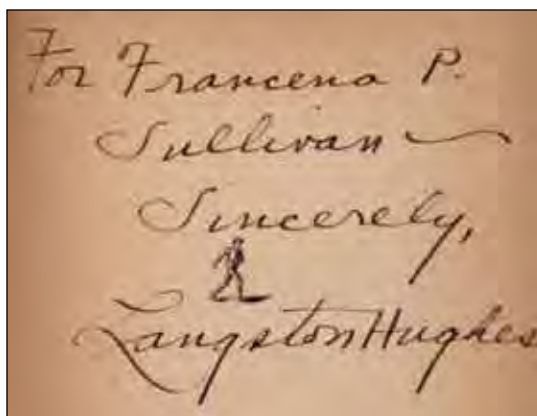 For Francena P.
Sullivan —
Sincerely,
Langston Hughes